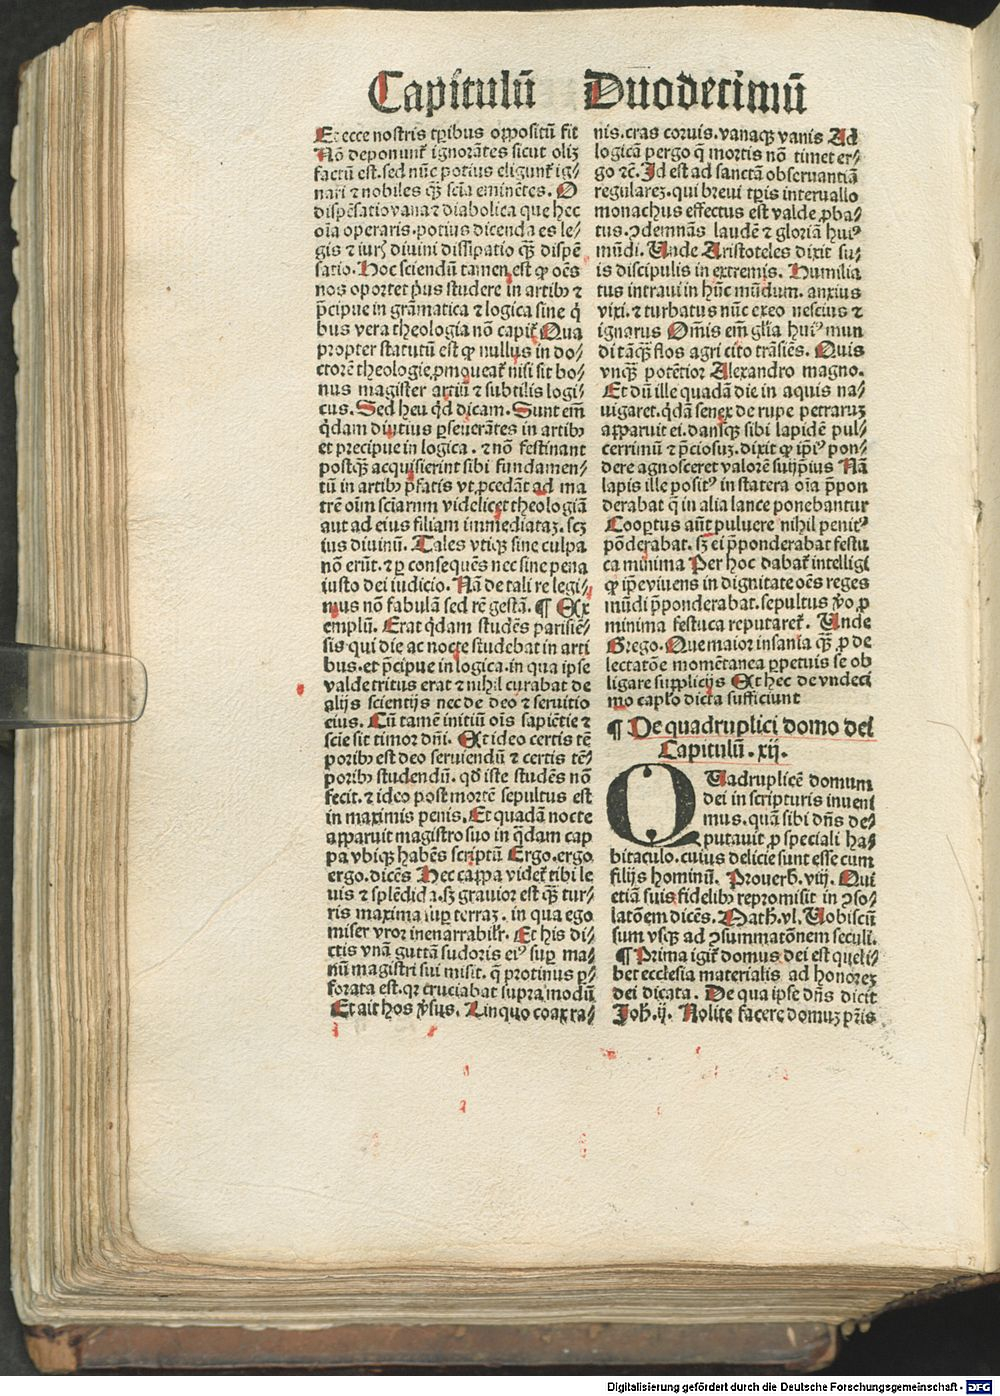 Capitulū Duodecimū
Et ecce nostris tꝑibus oppositū fit
Nō deponunt᷑ ignorātes sicut oliꝫ
factū est. sed nūc potius eligunt᷑ ig⸗
nari ⁊ nobiles qꝫ̄ sc̄ia eminētes. O
dispēsatio vana ⁊ diabolica que hec
oīa operaris. potius dicenda es le⸗
gis ⁊ iurꝭ diuini dissipatio qꝫ̄ dispē
satio. Hoc sciendū tamen est ꝙ oēs
nos oportet p̄us studere in artibꝫ ⁊
p̄cipue in grāmatica ⁊ logica sine q̇
bus vera theologia nō capit᷑ Qua
propter statutū est ꝙ nullus in do⸗
ctorē theologie ꝓmoueat᷑ nisi sit bo⸗
nus magister artiū ⁊ subtilis logi
cus. Sed heu q̇d dicam. Sunt em̄
q̇dam diutius ꝑseuerātes in artibꝫ
et precipue in logica. ⁊ nō festinant
postqꝫ̄ acquisierint sibi fundamen⸗
tū in artibꝫ p̄fatis vt ꝓcedāt ad ma
trē oīm sciarum videlicet theologiā
aut ad eius filiam immediataꝫ. scꝫ
ius diuinū. Tales vtiqꝫ sine culpa
nō erūt. ⁊ ꝑ consequēs nec sine pena
iusto dei iudicio. Nā de tali re legi⸗
mus nō fabulā sed rē gestā. ¶ Ex
emplū. Erat q̇dam studēs parisiē⸗
sis qui die ac nocte studebat in arti
bus. et p̄cipue in logica. in qua ipse
valde tritus erat ⁊ nihil curabat de
alijs scientijs nec de deo ⁊ seruitio
eius. Cū tamē initiū oīs sapiētie ⁊
scīe sit timor dn̄i. Et ideo certis tē
poribꝫ est deo seruiendū ⁊ certis tē⸗
poribꝫ studendū. qd̄ iste studēs nō
fecit. ⁊ ideo post mortē sepultus est
in maximis penis. Et quadā nocte
apparuit magistro suo in q̇dam cap
pa vbiqꝫ habēs scriptū Ergo. ergo
ergo. dicēs Hec cappa videt᷑ tibi le
uis ⁊ splēdida. sꝫ grauior est qꝫ̄ tur⸗
ris maxima suꝑ terraꝫ. in qua ego
miser vror inenarrabilr̄. Et his di⸗
ctis vnā guttā sudoris eiꝰ suꝑ ma⸗
nū magistri sui misit. q̄ protinus ꝑ⸗
forata est. qꝛ cruciabat supra modū
Et ait hos v̓sus. Linquo coax ra⸗
nis. cras coruis. vanaqꝫ vanis Ad
logicā pergo q̄ mortis nō timet er⸗
go ⁊c̄. Id est ad sanctā obseruantiā
regulareꝫ. qui breui tꝑis interuallo
monachus effectus est valde ꝓba⸗
tus. ꝯdemnās laudē ⁊ gloriā huiꝰ
mūdi. Unde Aristoteles dixit su⸗
is discipulis in extremis. Humilia
tus intraui in hūc mūdum. anxius
vixi. ⁊ turbatus nūc exeo nescius ⁊
ignarus Om̄is em̄ gl̄ia huiꝰ mun
di tāqꝫ̄ flos agri cito trāsiēs. Quis
vnqꝫ̄ potētior Alexandro magno.
Et dū ille quadā die in aquis na⸗
uigaret. q̇dā senex de rupe petraruꝫ
apparuit ei. dansqꝫ sibi lapidē pul⸗
cerrimū ⁊ p̄ciosuꝫ. dixit ꝙ ip̄iꝰ pon⸗
dere agnosceret valorē suijp̄ius Nā
lapis ille positꝰ in statera oīa p̄pon
derabat q̄ in alia lance ponebantur
Cooꝑtus aūt puluere nihil penitꝰ
pōderabat. sꝫ ei p̄ponderabat festu
ca minima Per hoc dabat᷑ intelligi
ꝙ ip̄e viuens in dignitate oēs reges
mūdi p̄ponderabat. sepultus v̓o ꝓ
minima festuca reputaret᷑. Unde
Grego. Que maior insania qꝫ̄ ꝓ de
lectatōe momētanea ꝑpetuis se ob
ligare supplicijs Et hec de vndeci
mo capl̓o dicta sufficiunt
¶ De quadruplici domo dei
Capitulū. xij.
QUadruplicē domum
dei in scripturis inueni
mus. quā sibi dn̄s de⸗
putauit ꝓ speciali ha⸗
bitaculo. cuius delicie sunt esse cum
filijs hominū. Prouerb̄. viij. Qui
etiā suis fidelibꝫ repromisit in ꝯso⸗
latōem dicēs. Math̄. vl. Uobiscū
sum vsqꝫ ad ꝯsummatōnem seculi.
¶ Prima igit᷑ domus dei est queli⸗
bet ecclesia materialis ad honoreꝫ
dei dicata. De qua ipse dn̄s dicit
Joh̄. ij. Nolite facere domuꝫ pr̄is
Digitalisierung gefördert durch die Deutsche Forschungsgemeinschaft - DFG